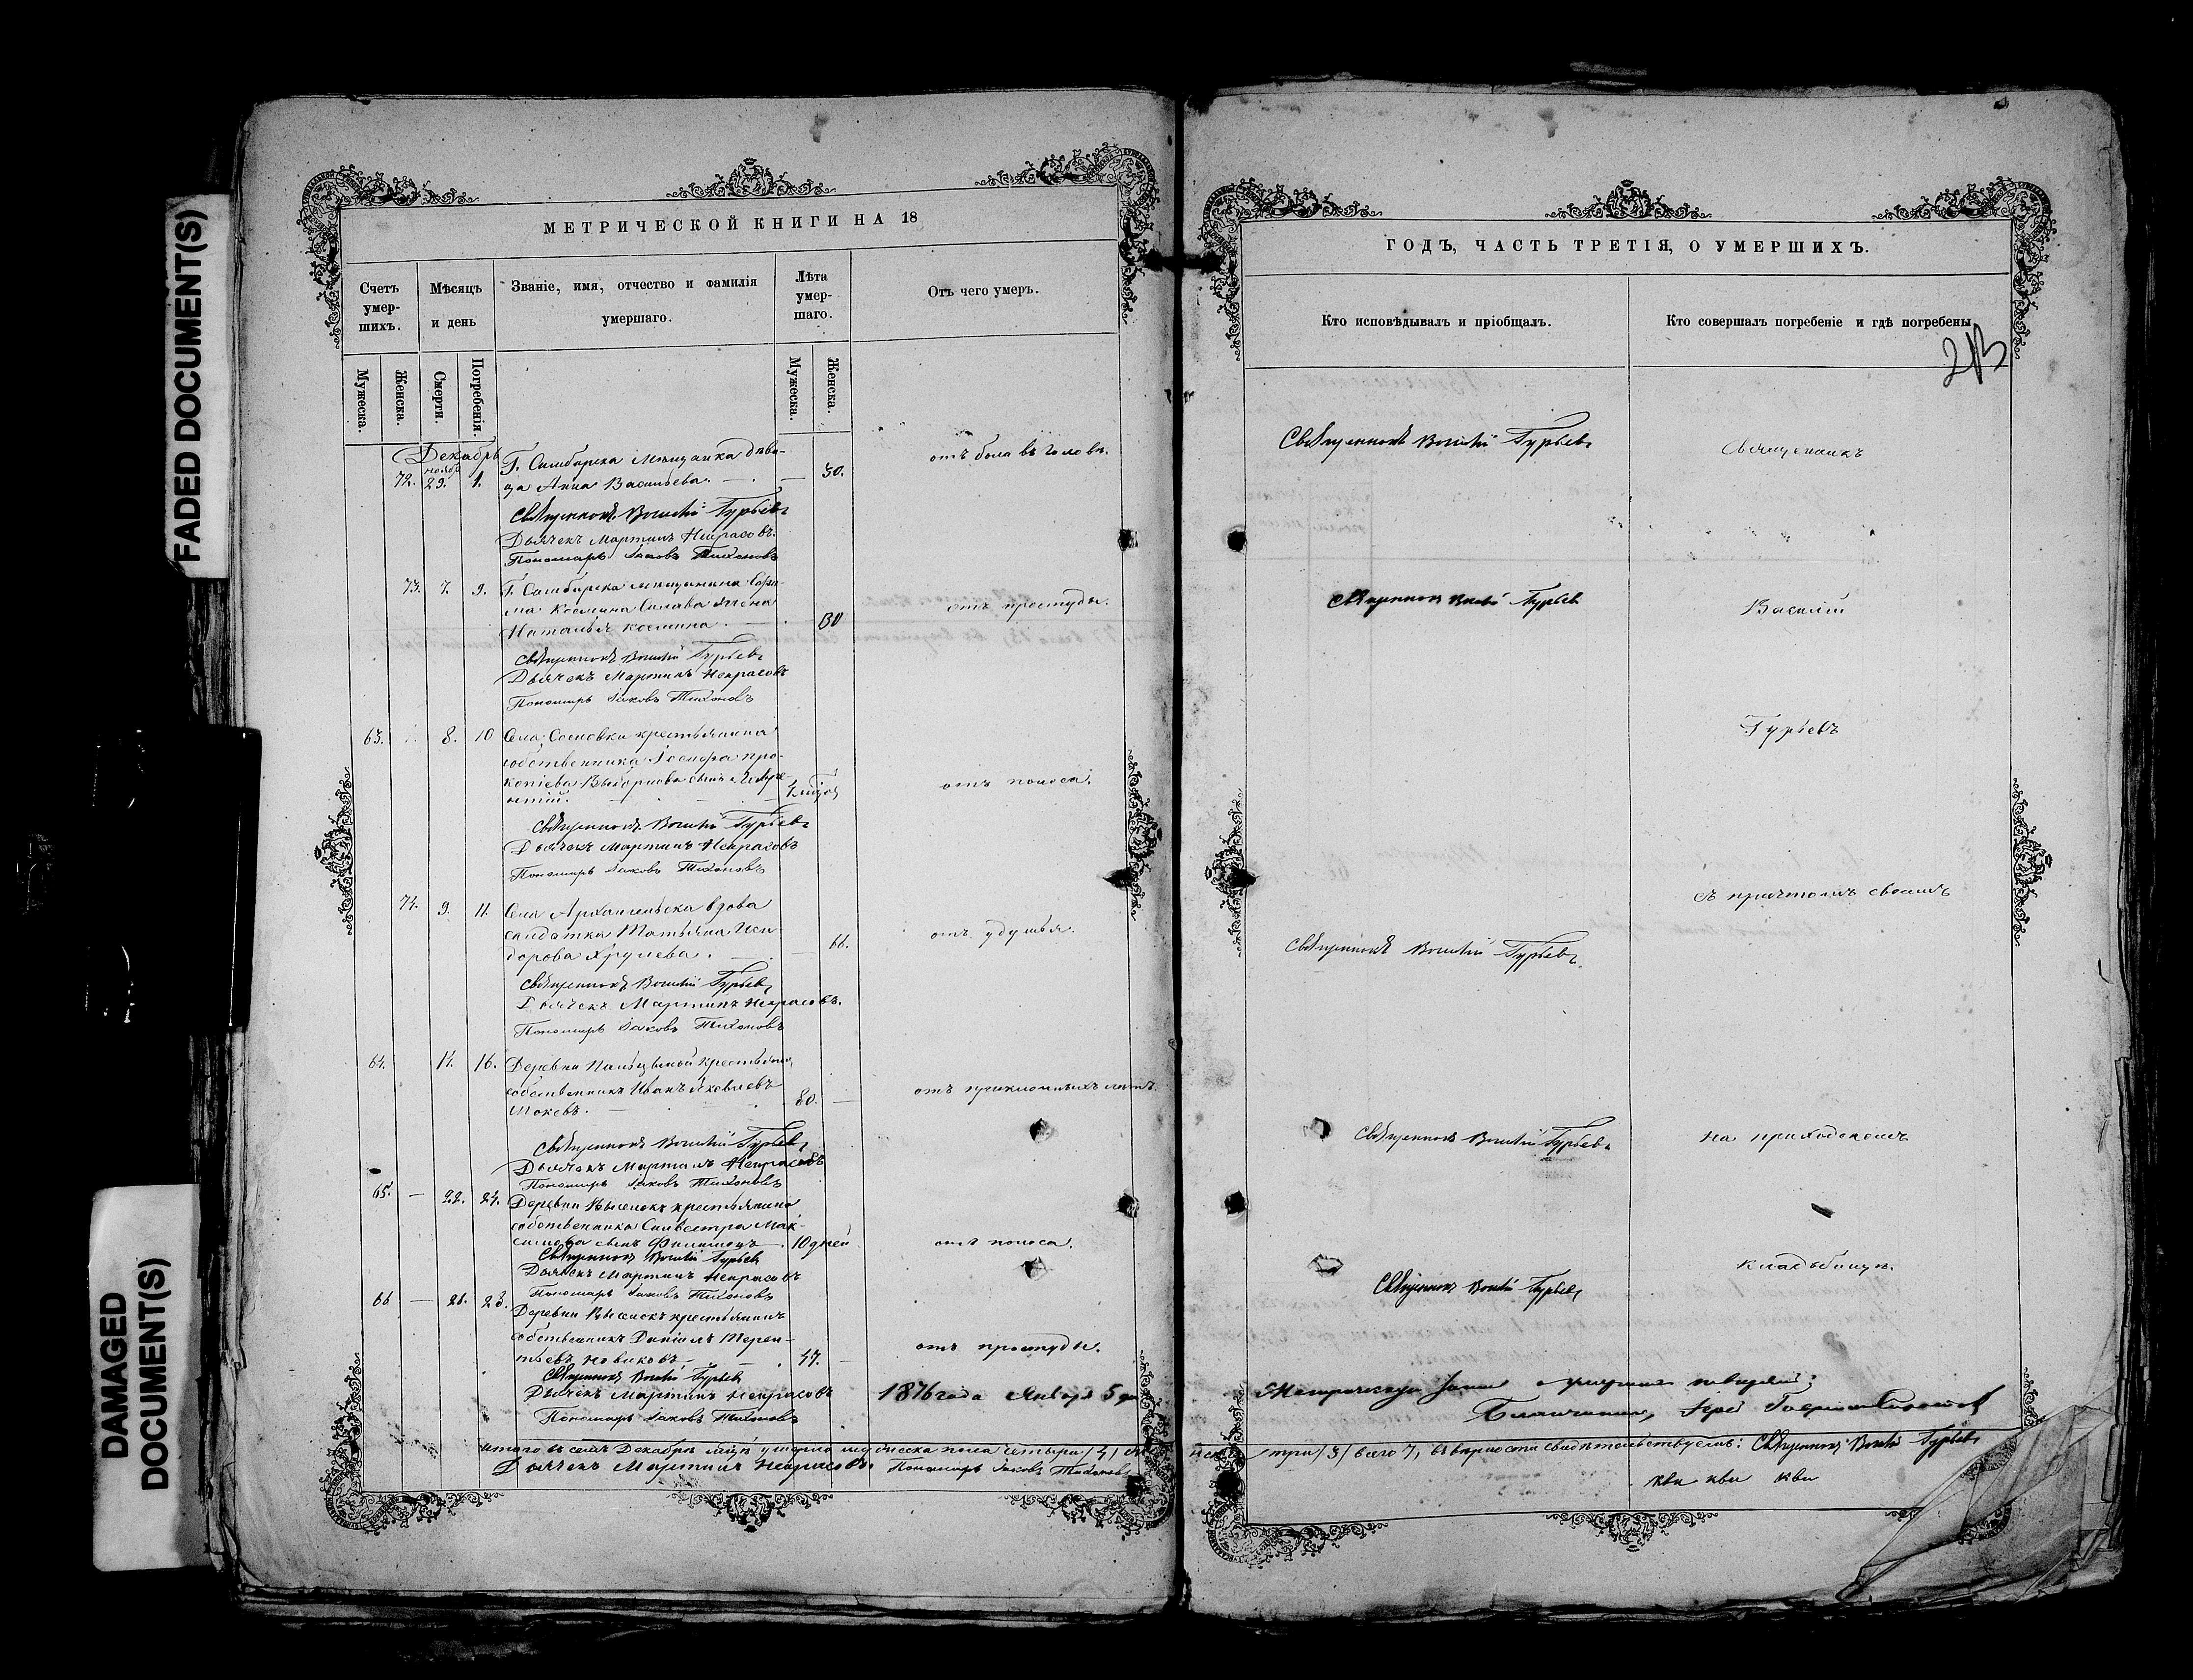 FADED DOCUMENT(S)
DAMAGED
DOCUMENT(S)
МЕТРИЧЕСКОЙ КНИГИ НА 18
Счетъ умер-
шихъ.
Мѣсяцъ
и день
Званіе, имя, отчество и фамилія
умершаго.
Лѣта
умер-
шаго.
Отъ чего умеръ.
Мужеска.
Женска.
Смерти.
Погребенія.
Мужеска.
Женска.
Декабрь
ноябр
72. 29. 1. Г. Симбирска мѣщанка дѣви-
ца Анна Васильева. — 30. отъ боли въ головѣ.
Священникъ Василій Гурьевъ
Дьячекъ Мартинъ Некрасовъ.
Пономарь Іаковъ Тихоновъ
73. 7. 9. Г. Симбирска мѣщанина
Космина жена
Наталья Космина. 30 отъ простуды.
Священникъ Василій Гурьевъ
Дьячекъ Мартинъ Некрасовъ
Пономарь Іаковъ Тихоновъ
63. 8. 10 Села Сосновки крестьянина
собственника Іосифа Про-
копіева сынъ
отъ поноса.
Священникъ Василій Гурьевъ
Дьячекъ Мартинъ Некрасовъ
Пономарь Іаковъ Тихоновъ
74. 9. 11. Села Архангельска вдова
солдатка Татьяна Иси
дорова Хрулева. 66. отъ удушья.
Священникъ Василій Гурьевъ
Дьячекъ Мартинъ Некрасовъ.
Пономарь Іаковъ Тихоновъ
64. 14. 16. Деревни крестьянинъ
собственникъ Иванъ Яковлевъ
Моковъ. 80. — отъ преклонныхъ лѣтъ.
Священникъ Василій Гурьевъ
Дьячекъ Мартинъ Некрасовъ
Пономарь Іаковъ Тихоновъ
65. — 22. 24. Деревни Выселокъ крестьянина
собственника Силвестра Мак-
симова сынъ Филимонъ 10 дней отъ поноса.
Священникъ Василій Гурьевъ
Дьячекъ Мартинъ Некрасовъ
Пономарь Іаковъ Тихоновъ
66 — 21. 23. Деревни Выселокъ крестьянинъ
собственникъ Даніилъ Терен-
тьевъ Новиковъ 47. отъ простуды.
Священникъ Василій Гурьевъ
Дьячекъ Мартинъ Некрасовъ
Пономарь Іаковъ Тихоновъ
1876 года Января 5 дня
Итого въ семъ Декабрѣ мцѣ умерло мужеска пола четыри /4/
Дьячекъ Мартинъ Некрасовъ. Пономарь Іаковъ Тихоновъ
ГОДЪ, ЧАСТЬ ТРЕТІЯ, О УМЕРШИХЪ.
Кто исповѣдывалъ и пріобщалъ.
Кто совершалъ погребеніе и гдѣ погребены
213
Священникъ Василій Гурьевъ
Священникъ
Священникъ Василій Гурьевъ
Василій
Гурьевъ
съ причтомъ своимъ
Священникъ Василій Гурьевъ
Священникъ Василій Гурьевъ
на приходскомъ
кладбищѣ.
Священникъ Василій Гурьевъ
три /3/ всего 7, въ вѣрности свидѣтельствуемъ: Священникъ Василій Гурьевъ